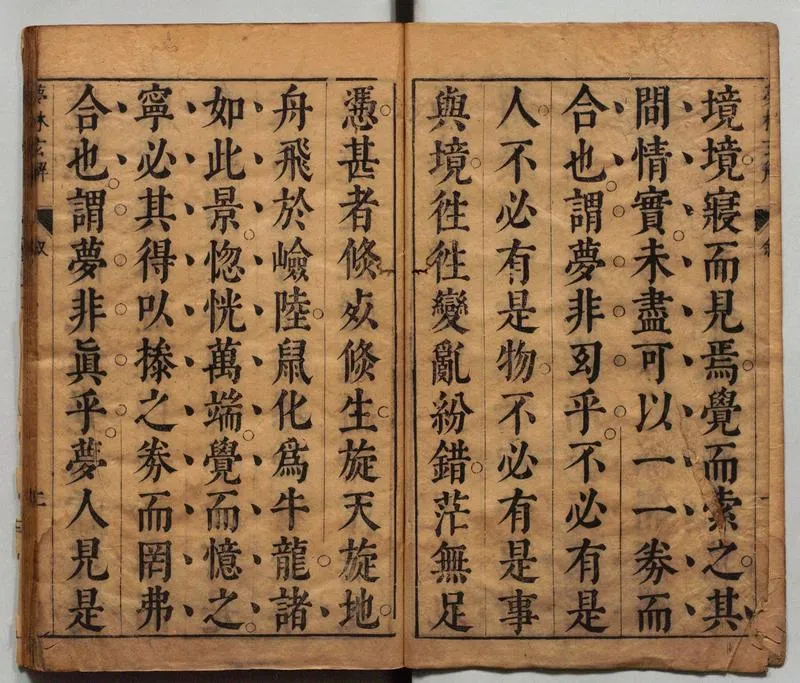 夢林玄解
境境寢而見焉覺而索之其
間情實未盡可以一一劵而
合也謂夢非幻乎不必有是
人不必有是物不必有是事
與境徃徃變亂紛錯茫無足
憑甚者倐死倐生旋天旋地
舟飛於嶮陸鼠化爲牛龍諸
如此景惚恍萬端覺而憶之
寧必其得以操之劵而罔弗
合也謂夢非眞乎夢人見是
夢林玄解 敘 二